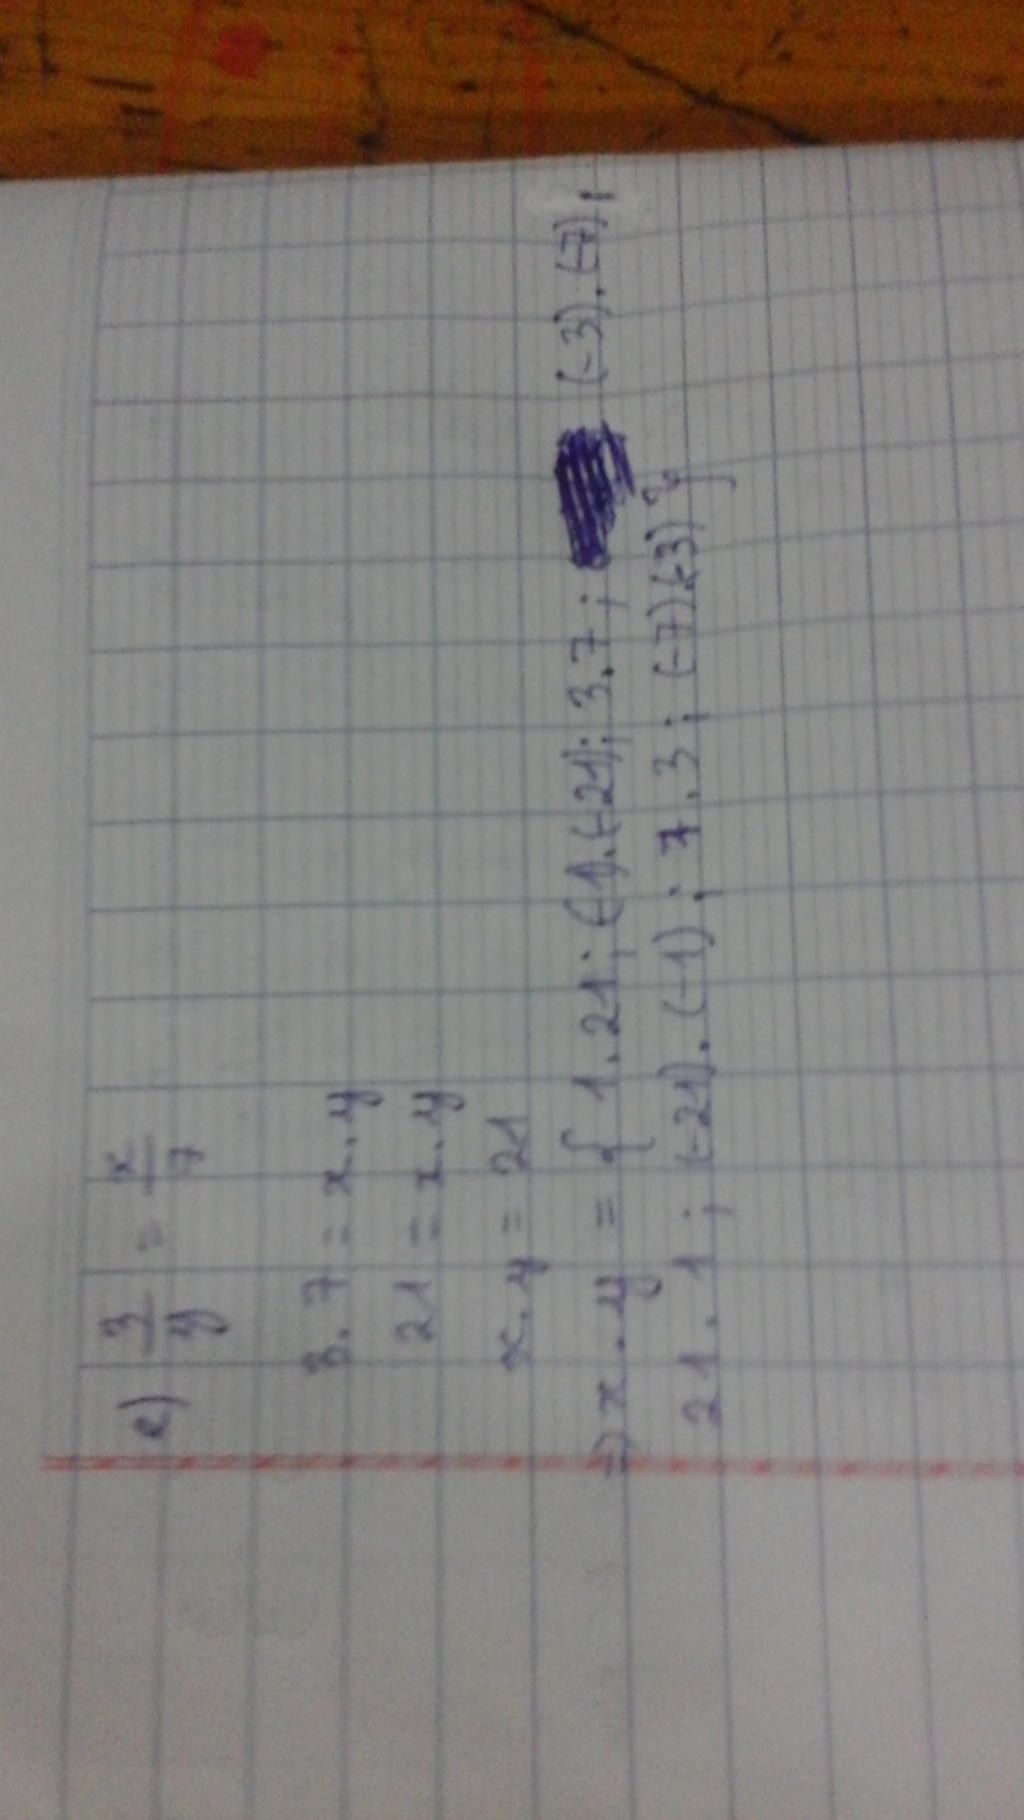 e) 3/y = x/7
3.7 = x.y
21 = x.y
x.y = 21
=) x.y = { 1.21; (-1).(-21); 3.7; (-3).(-7);
21.1; (-21).(-1); 7.3; (-7)(-3) }